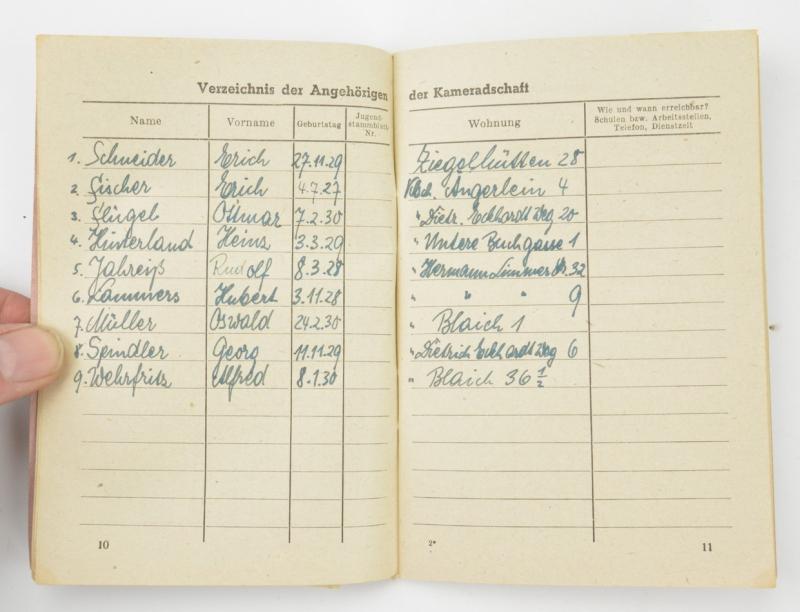 Verzeichnis der Angehörigen der Kameradschaft
Name Vorname Geburtstag Jugend-stammblatt Nr. Wohnung Wie und wann erreichbar? Schulen bzw. Arbeitsstellen, Telefon, Dienstzeit
1. Schneider Erich 27.11.29 Ziegelhütten 28
2. Fischer Erich 4.7.27 Angerlein 4
3. Flügel Ottmar 7.2.30 " Dietr. Eckhardt Weg 20
4. Hünterland Heinz 3.3.29 " Untere Buchgasse 1
5. Jahreiß Rudolf 8.3.28 " Hermann Limmer Str. 32
6. Lammers Hubert 3.11.28 " " " 9
7. Müller Oswald 24.2.30 " Blaich 1
8. Spindler Georg 11.11.29 " Dietrich Eckhardt Weg 6
9. Wehrfritz Alfred 8.1.30 " Blaich 36 ½
10 2* 11